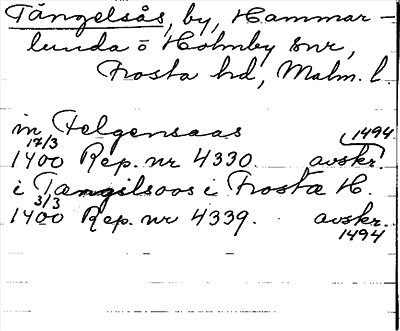 Tångelsås, by, Hammar-
lunda o Holmby snr,
Frosta hd, Malm. l.
in Felgensaas 1494
17/3
1400 Rep. nr 4330. avskr.
i Tangilsoos i Frostæ H.
3/3
1400 Rep. nr 4339. avskr.
1494